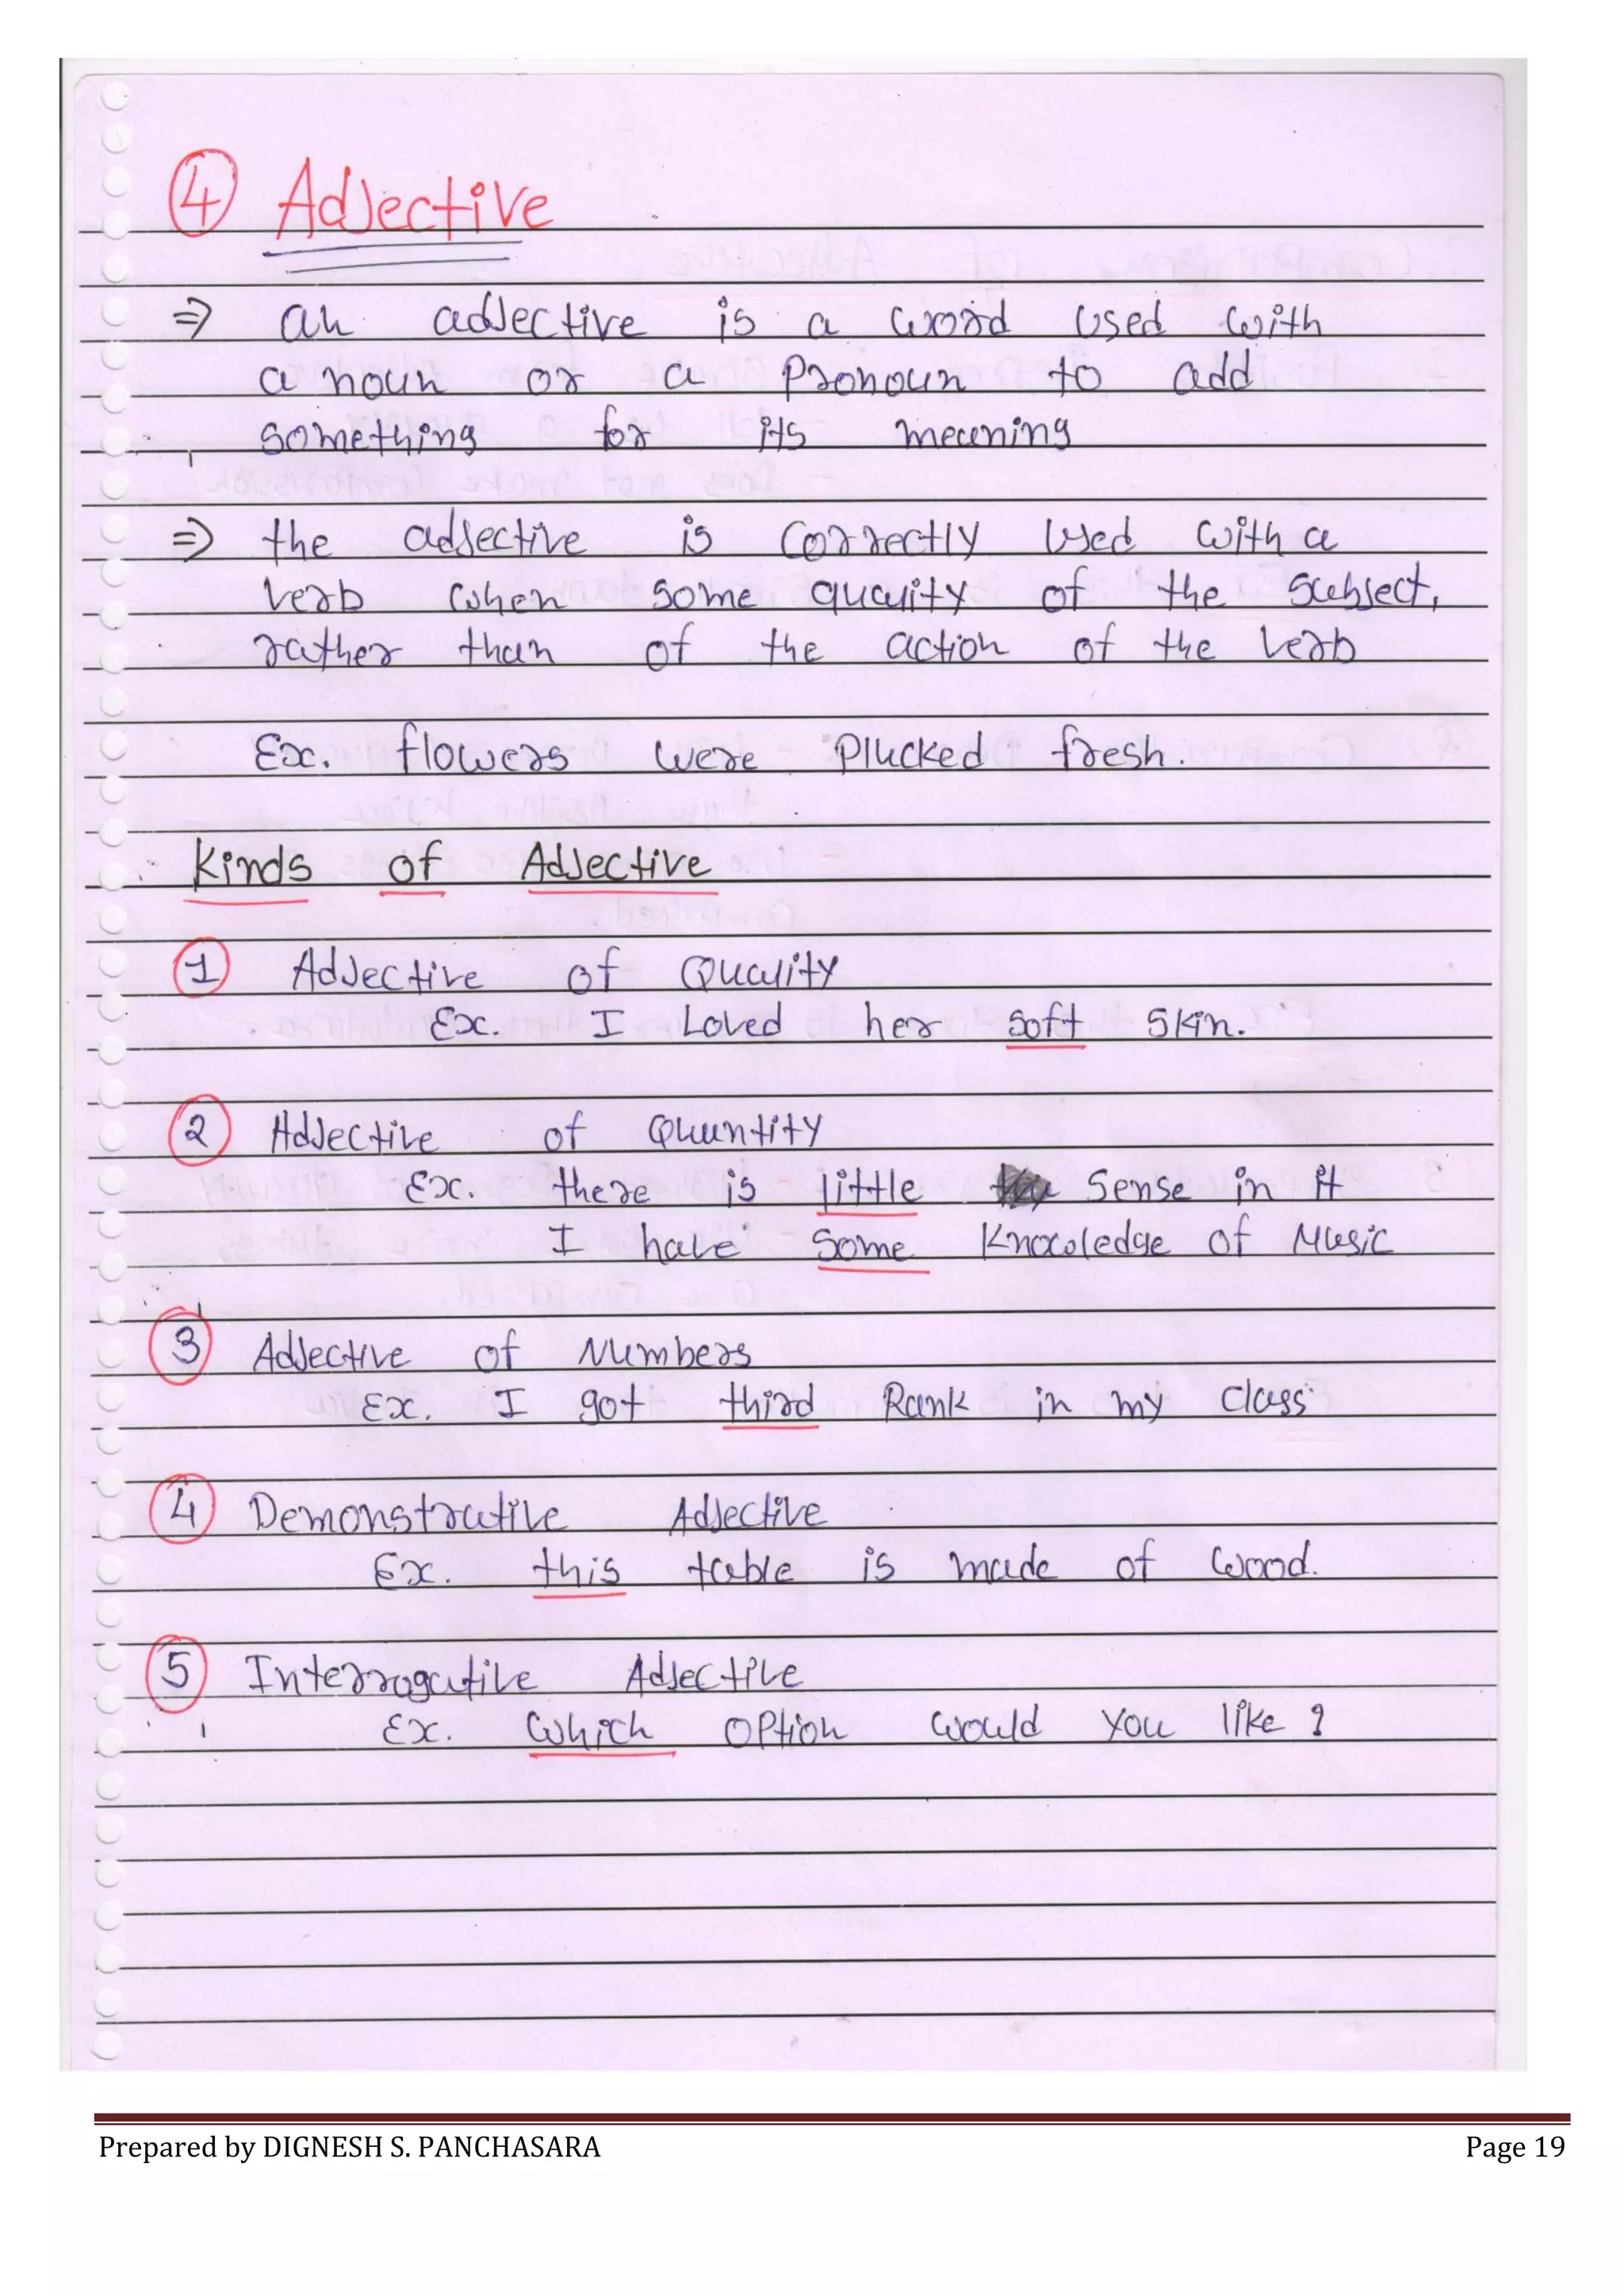 4 Adjective
⇒ an adjective is a word used with
a noun or a pronoun to add
something for its meaning
⇒ the adjective is correctly used with a
verb when some quality of the subject,
rather than of the action of the verb
Ex. flowers were plucked fresh.
Kinds of Adjective
1 Adjective of Quality
Ex. I Loved her soft skin.
2 Adjective of Quantity
Ex. there is little sense in it
I have some knowledge of Music
3 Adjective of Numbers
Ex. I got third Rank in my class
4 Demonstrative Adjective
Ex. this table is made of wood.
5 Interrogative Adjective
Ex. which option would you like ?
Prepared by DIGNESH S. PANCHASARA Page 19